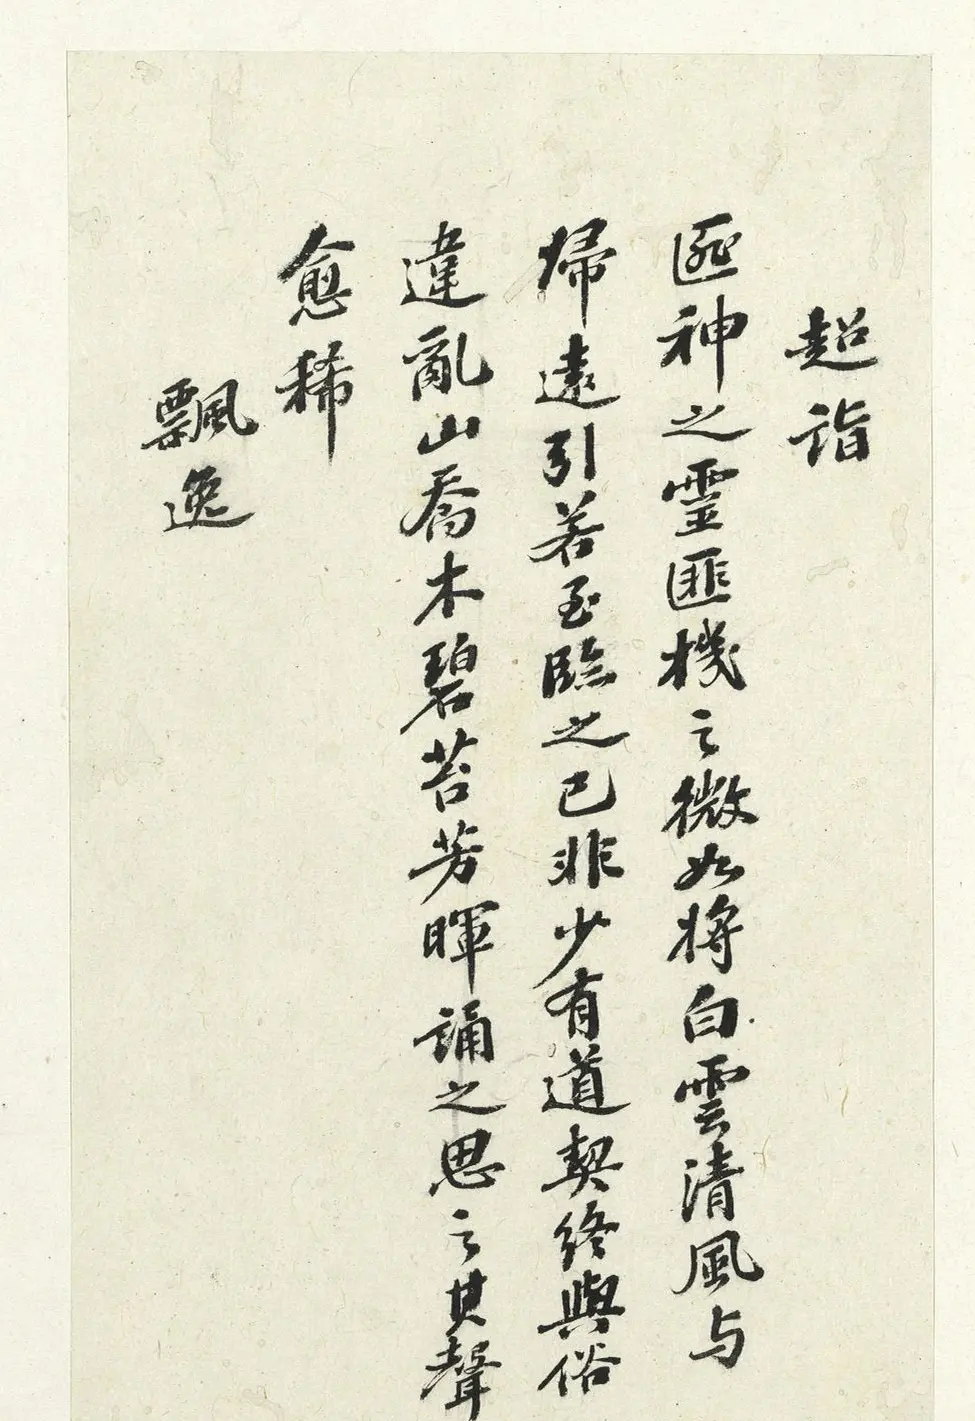 超詣
匪神之靈匪機之微如将白雲清風与
歸遠引若至臨之已非少有道契終與俗
違亂山喬木碧苔芳暉誦之思之其聲
愈稀
飄逸